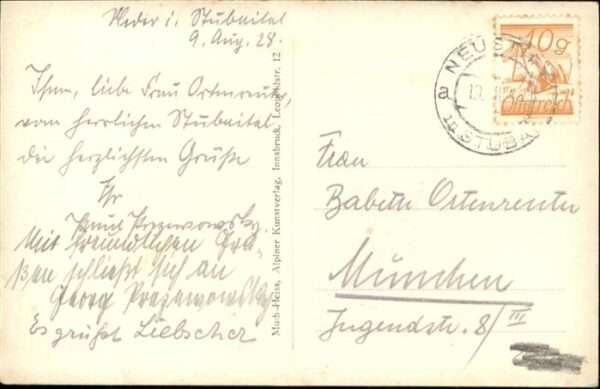 Meder i. Stubaital
9. Aug. 28.
Ihnen, liebe Frau Ortenreuter,
vom herrlichen Stubaital
die herzlichsten Grüße
Ihr
Paul Przewowsky.
Mit freundlichen Grü-
ßen schließt sich an
Georg Przewowsky
Es grüßt Liebscher
Muth-Heiss, Alpiner Kunstverlag, Innsbruck, Leopoldstr. 12
10g
Österreich
NEUSTIFT
a
in STUBAI
Frau
Babette Ortenreuter
München
Jugendstr. 8/III